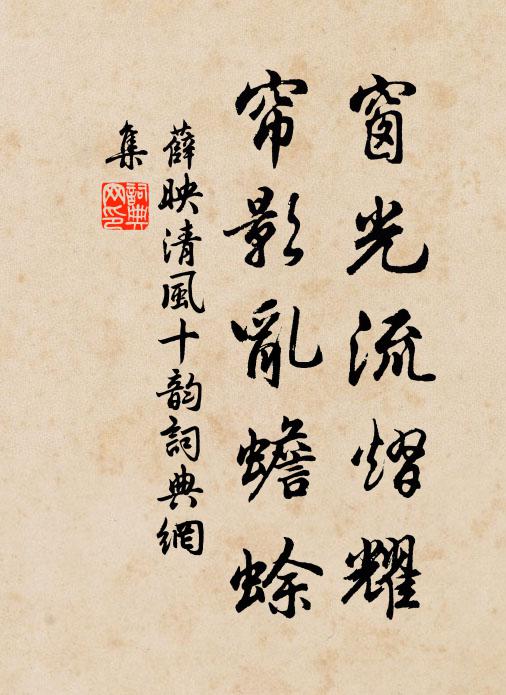 窗光流熠耀
帘影乱蟾蜍
薛映清風十韵詞典網
集
詞典
网印